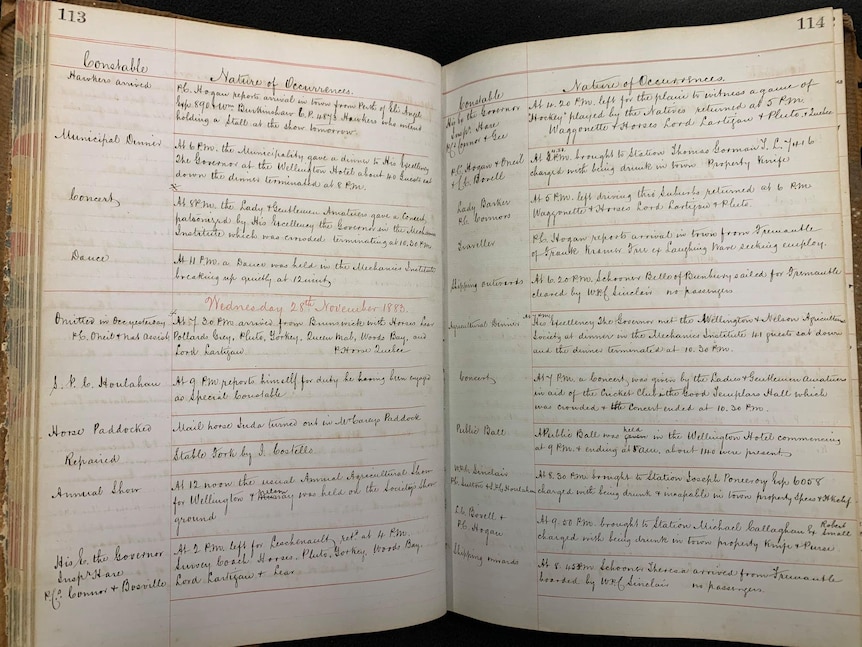 113
Constable
Nature of Occurrences.
Hawkers arrived
P.C. Hogan reports arrival in town from Perth of
Exp 890 & Wm Burkinshaw C.P. 4873 Hawkers who intend
holding a Stall at the show tomorrow.
Municipal Dinner
At 6 P.M. the Municipality gave a dinner to His Excellency
The Governor at the Wellington Hotel about 40 Guests sat
down the dinner terminated at 8 P.M.
Concert
At 8 P.M. the Lady & Gentlemen Amateurs gave a Concert,
patronized by His Excellency the Governor in the Mechanics
Institute which was crowded terminating at 10.30 P.M.
Dance
At 11 P.M. a Dance was held in the Mechanics Institute
breaking up quietly at 12 midnt.
Wednesday 28th November 1883.
Omitted in Occ yesterday
P.C. Oneil & Nat Assist
At 7.30 P.M. arrived from Brunswick with Horses Lear
Pollards Grey, Pluto, Jockey, Queen Mab, Woods Bay, and
Lord Lartigau P. Horse Quebec
S. P. C. Houlahan
At 9 P.M. reports himself for duty he having been engaged
as Special Constable
Horse Paddocked
Mail horse Juda turned out in McCareys Paddock
Repaired
Stable Fork by J. Costello
Annual Show
At 12 noon the usual Annual Agricultural Show
for Wellington & Nelson was held on the Societys Show
ground
His E. the Governor
Inspr Hare
P.Cs Connor & Bosville
At 2 P.M. left for Leschenault, retd at 4 P.M.
Survey Coach Horses, Pluto, Jockey, Woods Bay,
Lord Lartigau & Lear
114
Constable
Nature of Occurrences.
His Ex the Governor
Inspr Hare
P.Cs Connor & Gee
At 4.20 P.M. left for the plain to witness a game of
"Hockey" played by the Natives returned at 5 P.M.
Waggonette & Horses Lord Lartigau & Pluto & Quebec
P.C. Hogan & Oneil
& L.C. Bovell
At P.M. brought to Station Thomas Gorman T.L. 7416
charged with being drunk in town Property Knife
Lady Barker
P.C. Connors
At 5 P.M. left driving this Suburbs returned at 6 P.M.
Waggonette & Horses Lord Lartigau & Pluto.
Traveller
P.C. Hogan reports arrival in town from Fremantle
of Frank Kramer Free ex Laughing Wave seeking employ.
Shipping outwards
At 6.20 P.M. Schooner Bells of Bunbury sailed for Fremantle
cleared by W.P.C. Sinclair no passengers
Agricultural Dinner
His Excellency The Governor met the Wellington & Nelson Agricultural
Society at dinner in the Mechanics Institute 101 guests sat down
and the dinner terminated at 10.30 P.M.
Concert
At 7 P.M. a Concert was given by the Ladies & Gentlemen Amateurs
in aid of the Cricket Club & the Good Templars Hall which
was crowded & the Concert ended at 10.30 P.M.
Public Ball
A Public Ball was held in the Wellington Hotel commencing
at 9 P.M. & ending at 5 a.m., about 140 were present
W.P.C. Sinclair
P.C. Sutton & S.P.C. Houlahan
At 8.30 P.M. brought to Station Joseph Pomeroy Exp 6058
charged with being drunk & incapable in town property Specs & Hkchief
L.C. Bovell &
P.C. Hogan
At 9.50 P.M. brought to Station Michael Callaghan & Robert Small
charged with being drunk in town property Knife & Purse
Shipping inwards
At 8.45 P.M. Schooner Theresa arrived from Fremantle
boarded by W.P.C. Sinclair no passengers.